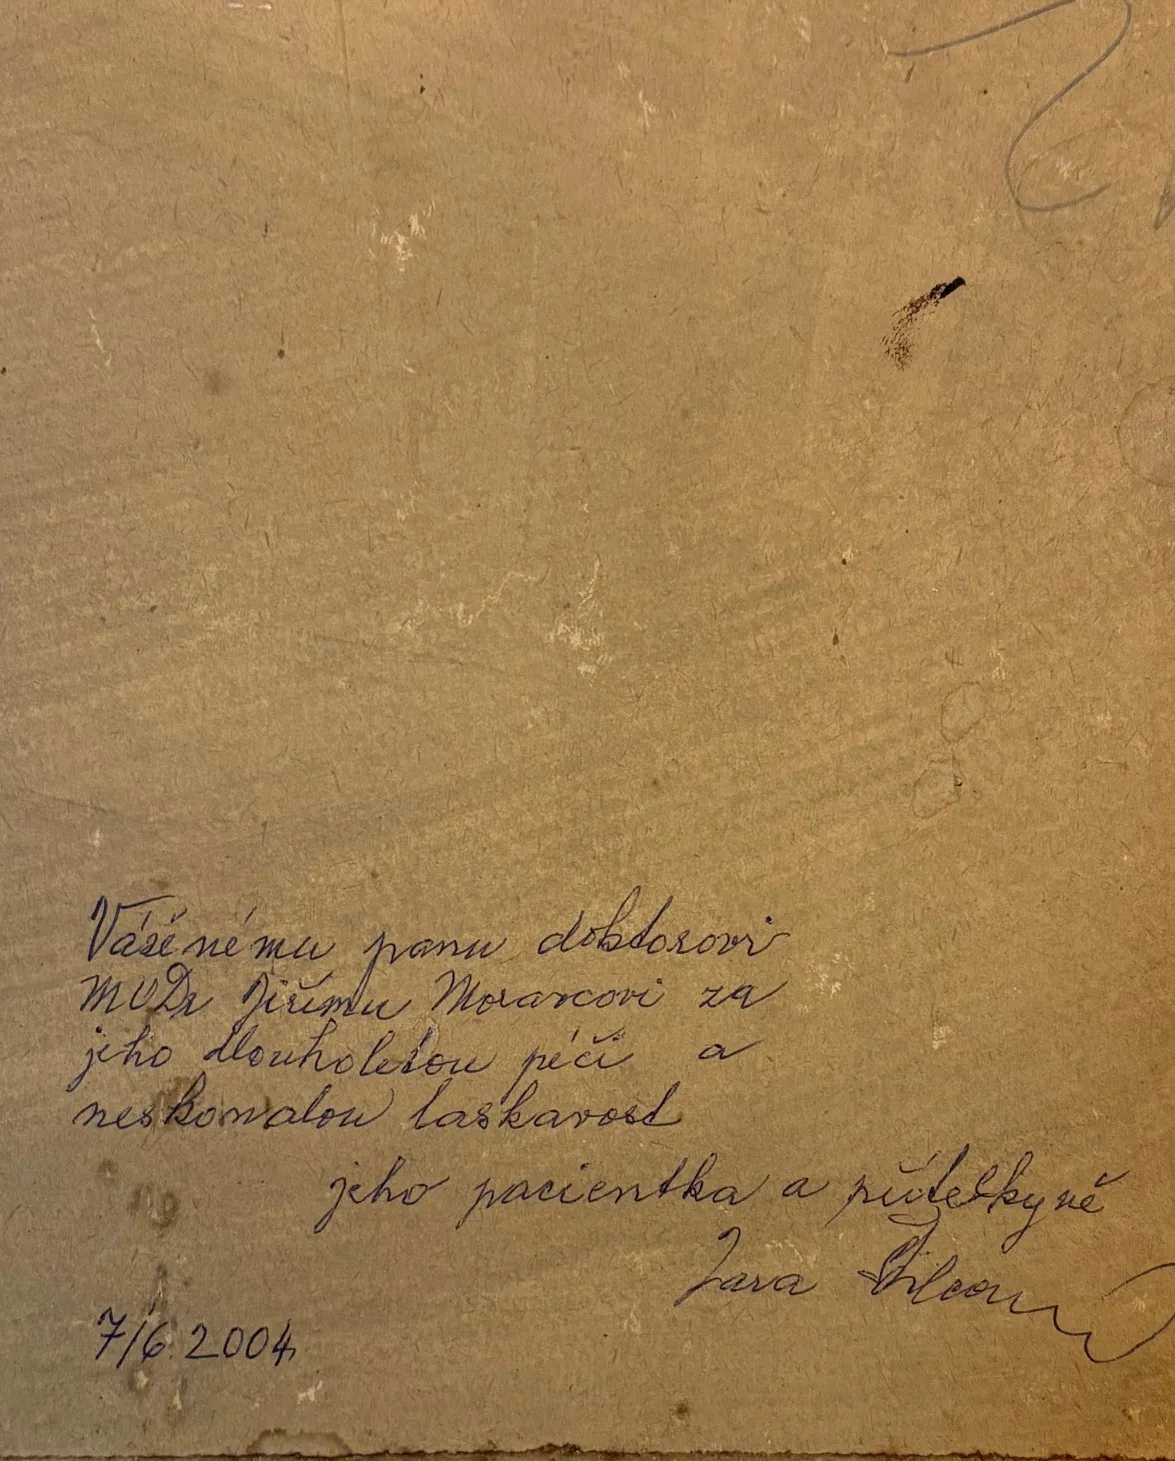 Váženému panu doktorovi
MUDr Jiřímu Moravcovi za
jeho dlouholetou péči a
neskonalou laskavost
jeho pacientka a přítelkyně
Jara
7/6 2004